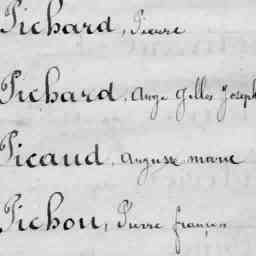 Pichard, Pierre
Pichard, Ange Gilles Joseph
Picaud, Auguste marie
Pichon, Pierre françois